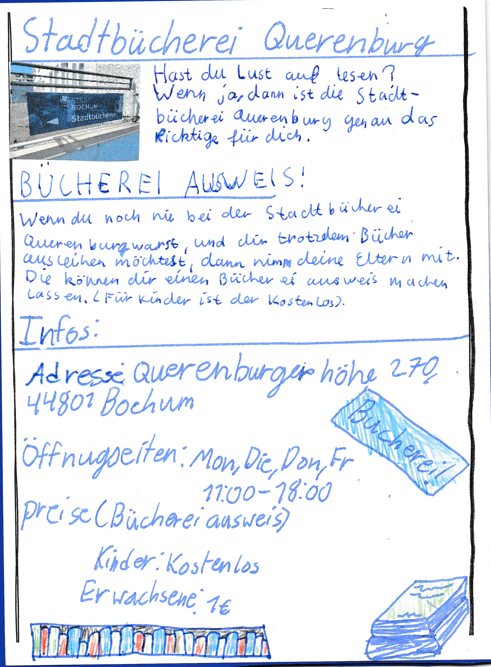 Stadtbücherei Querenburg
Hast du Lust auf lesen?
Wenn ja, dann ist die Stadt-
bücherei Querenburg genau das
Richtige für dich.
BOCHUM
Stadtbücherei
BÜCHEREI AUSWEIS!
Wenn du noch nie bei der Stadtbücherei
Querenburg warst, und dir trotzdem Bücher
ausleihen möchtest, dann nimm deine Eltern mit.
Die können dir einen Bücherei ausweis machen
lassen. (Für Kinder ist der Kostenlos).
Infos:
Adresse Querenburger höhe 270,
44801 Bochum
Bücherei!
Öffnugseiten: Mon, Die, Don, Fr
11:00-18:00
preise (Bücherei ausweis)
Kinder: Kostenlos
Erwachsene: 1€